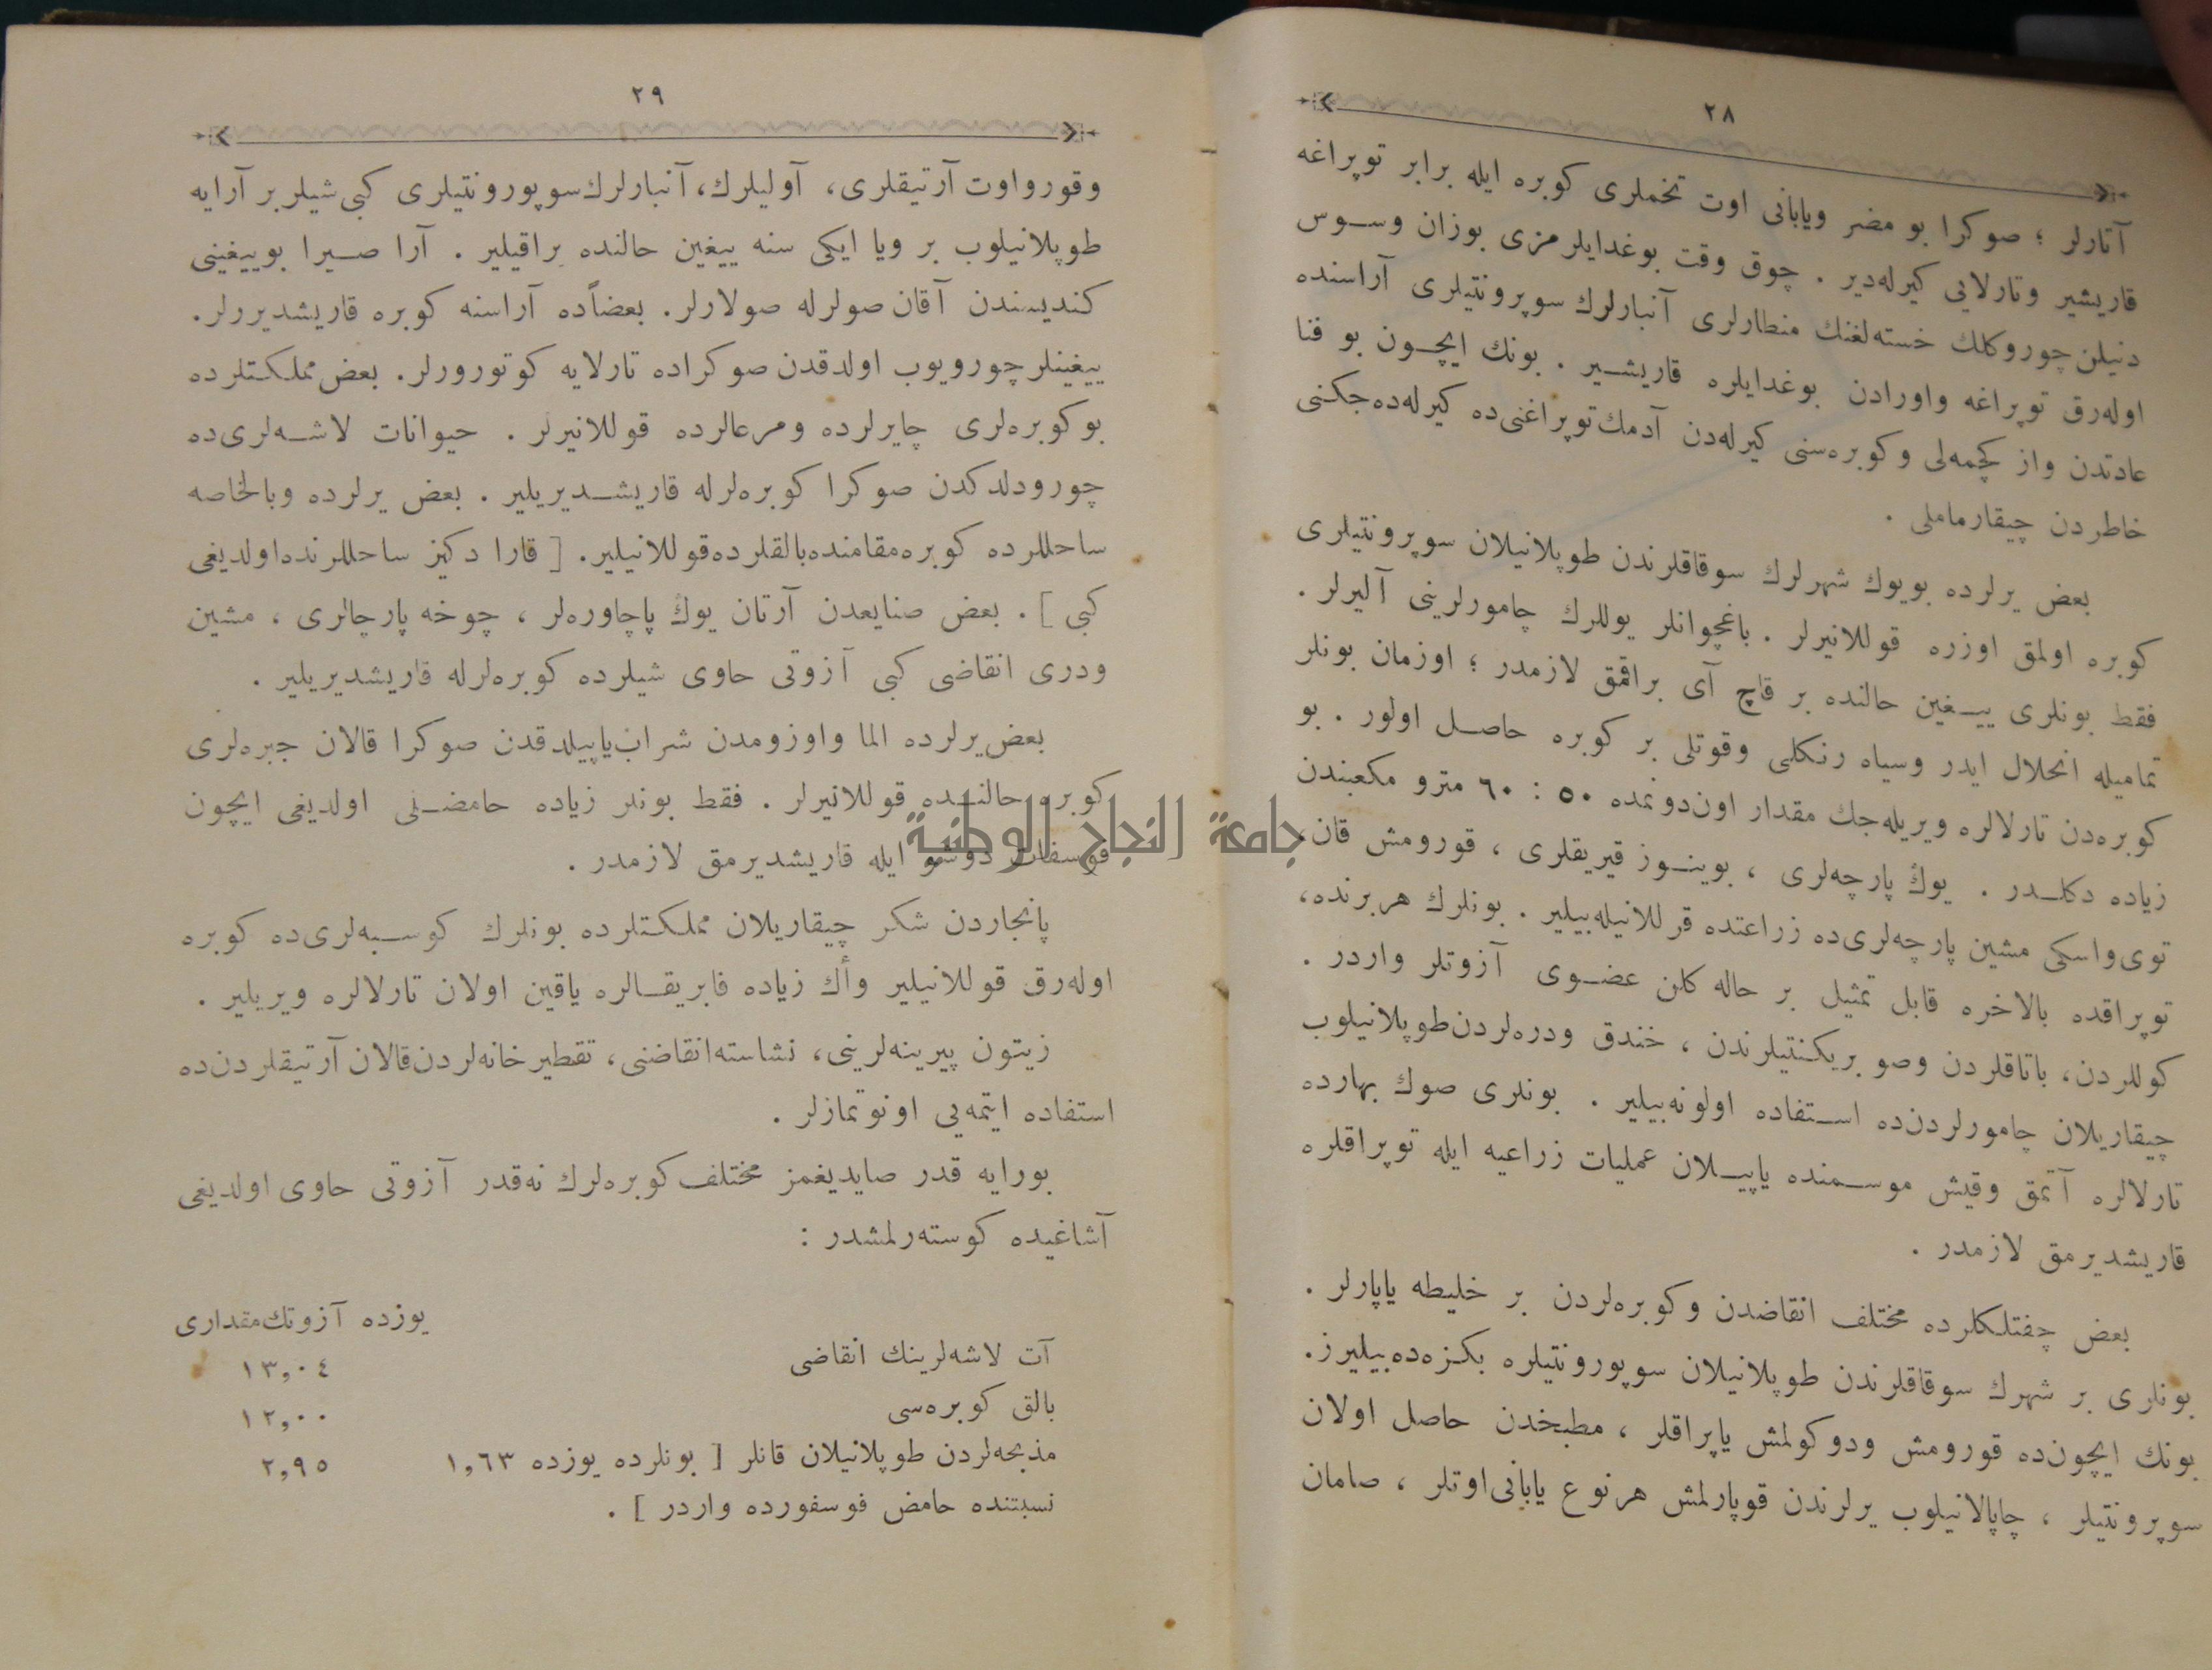 ٢٨
آتارلر ؛ صوكرا بو مضر ويابانى اوت تخملرى كوبره ايله برابر توپراغه
قاريشير وتارلايى كيرله‌دير . چوق وقت بوغدايلرمزى بوزان وسوس
دنيلن چوروكلك خسته‌لغنك منطارلرى آنبارلرك سوپرونتيلرى آراسنده
اوله‌رق توپراغه واورادن بوغدايلره قاريشير . بونك ايچون بو فنا
عادتدن واز كچمه‌لى وكوبره‌سنى كيرله‌دن آدمك توپراغنى‌ده كيرله‌ده‌جكنى
خاطردن چيقارماملى .
بعض يرلرده بويوك شهرلرك سوقاقلرندن طوپلانيلان سوپرونتيلرى
كوبره اولمق اوزره قوللانيرلر . باغچوانلر يوللرك چامورلرينى آليرلر .
فقط بونلرى ييغين حالنده بر قاچ آى براقمق لازمدر ؛ اوزمان بونلر
تماميله انحلال ايدر وسياه رنكلى وقوتلى بر كوبره حاصل اولور . بو
كوبره‌دن تارلالره ويريله‌جك مقدار اون‌دونمده ٥٠ : ٦٠ مترو مكعبندن
زياده دكلدر . يوك پارچه‌لرى ، بوينوز قيريقلرى ، قورومش قان،
توى‌واسكى مشين پارچه‌لرى‌ده زراعتده قوللانيله‌بيلير . بونلرك هربرنده،
توپراقده بالاخره قابل تمثيل بر حاله كلن عضوى آزوتلر واردر .
كوللردن، باتاقلردن وصو بريكنتيلرندن ، خندق ودره‌لردن‌طوپلانيلوب
چيقاريلان چامورلردن‌ده استفاده اولونه‌بيلير . بونلرى صوك بهارده
تارلالره آتمق وقيش موسمنده ياپيلان عمليات زراعيه ايله توپراقلره
قاريشديرمق لازمدر .
بعض چفتلكلرده مختلف انقاضدن وكوبره‌لردن بر خليطه ياپارلر .
بونلرى بر شهرك سوقاقلرندن طوپلانيلان سوپورونتيلره بكزه‌ده‌بيليرز.
بونك ايچون‌ده قورومش ودوكولمش ياپراقلر ، مطبخدن حاصل اولان
سوپرونتيلر ، چاپالانيلوب يرلرندن قوپارلمش هرنوع يابانى‌اوتلر ، صامان
٢٩
وقورواوت آرتيقلرى، آوليلرك، آنبارلرك‌سوپورونتيلرى كبى‌شيلربر آرايه
طوپلانيلوب بر ويا ايكى سنه ييغين حالنده براقيلير . آرا صيرا بوييغينى
كنديسندن آقان صولرله صولارلر. بعضاًده آراسنه كوبره قاريشديررلر.
ييغينلرچورويوب اولدقدن صوكراده تارلايه كوتورورلر. بعض‌مملكتلرده
بوكوبره‌لرى چايرلرده ومرعالرده قوللانيرلر . حيوانات لاشه‌لرى‌ده
چورودلدكدن صوكرا كوبره‌لرله قاريشديريلير . بعض يرلرده وبالخاصه
ساحللرده كوبره‌مقامنده‌بالقلرده‌قوللانيلير. [ قارا دكيز ساحللرنده‌اولديغى
كبى ] . بعض صنايعدن آرتان يوك پاچاوره‌لر ، چوخه پارچالرى ، مشين
ودرى انقاضى كبى آزوتى حاوى شيلرده كوبره‌لرله قاريشديريلير .
بعض‌يرلرده الما واوزومدن شراب‌ياپيلدقدن صوكرا قالان جبره‌لرى
كوبره حالنده قوللانيرلر . فقط بونلر زياده حامضلى اولديغى ايچون
فوسفات دوشو ايله قاريشديرمق لازمدر .
پانجاردن شكر چيقاريلان مملكتلرده بونلرك كوسبه‌لرى‌ده كوبره
اوله‌رق قوللانيلير وأك زياده فابريقالره ياقين اولان تارلالره ويريلير .
زيتون پيرينه‌لرينى، نشاسته‌انقاضنى، تقطيرخانه‌لردن‌قالان آرتيقلردن‌ده
استفاده ايتمه‌يى اونوتمازلر .
بورايه قدر صايديغمز مختلف كوبره‌لرك نه‌قدر آزوتى حاوى اولديغى
آشاغيده كوسته‌رلمشدر :
يوزده آزوتك‌مقدارى
آت لاشه‌لرينك انقاضى ١٣,٠٤
بالق كوبره‌سى ١٢,٠٠
مذبحه‌لردن طوپلانيلان قانلر [ بونلرده يوزده ١,٦٣ ٢,٩٥
نسبتنده حامض فوسفورده واردر ] .
جامعة النجاح الوطنية